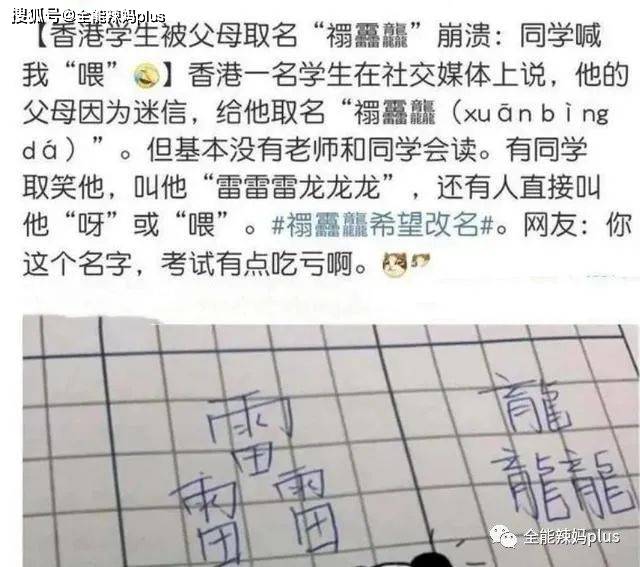 搜狐号@全能辣妈plus
【香港学生被父母取名“禤靐龘”崩溃：同学喊
我“喂”】香港一名学生在社交媒体上说，他的
父母因为迷信，给他取名“禤靐龘（xuānbìng
dá）”。但基本没有老师和同学会读。有同学
取笑他，叫他“雷雷雷龙龙龙”，还有人直接叫
他“呀”或“喂”。#禤靐龘希望改名#。网友：你
这个名字，考试有点吃亏啊。
雷 龍
雷雷 龍龍
全能辣妈plus